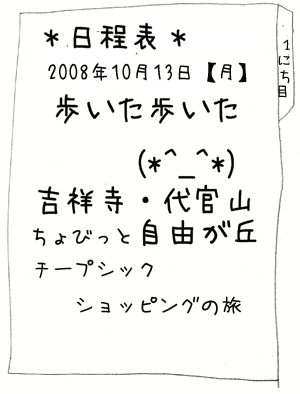 ＊日程表＊
2008年10月13日【月】
歩いた歩いた
(*^_^*)
吉祥寺・代官山
ちょびっと自由が丘
チープシック
ショッピングの旅
1にち目